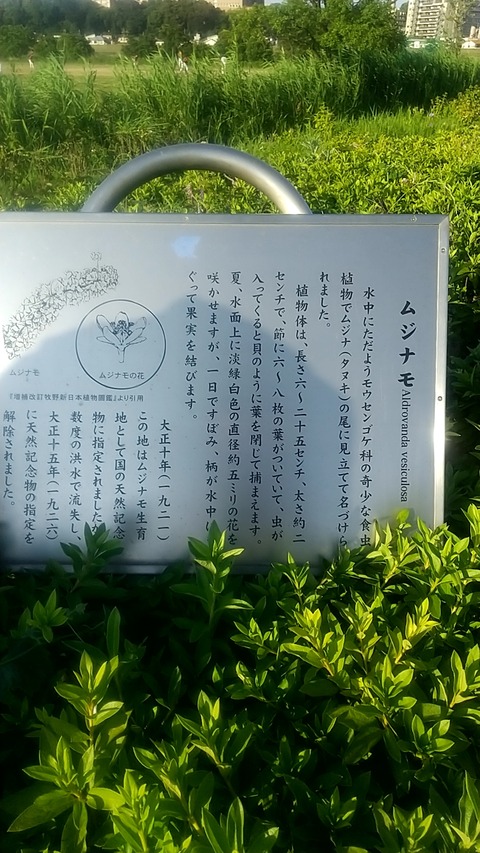 ムジナモ Aldrovanda vesiculosa
水中にただようモウセンゴケ科の奇少な食虫
植物でムジナ(タヌキ)の尾に見立てて名づけら
れました。
植物体は、長さ六〜二十五センチ、太さ約二
センチで、節に六〜八枚の葉がついていて、虫が
入ってくると貝のように葉を閉じて捕まえます。
夏、水面上に淡緑白色の直径約五ミリの花を
咲かせますが、一日ですぼみ、柄が水中に
ぐって果実を結びます。
ムジナモ
ムジナモの花
『増補改訂牧野新日本植物圖鑑』より引用
大正十年(一九二一)
この地はムジナモ生育
地として国の天然記念
物に指定されました
数度の洪水で流失し、
大正十五年(一九二六)
に天然記念物の指定を
解除されました。